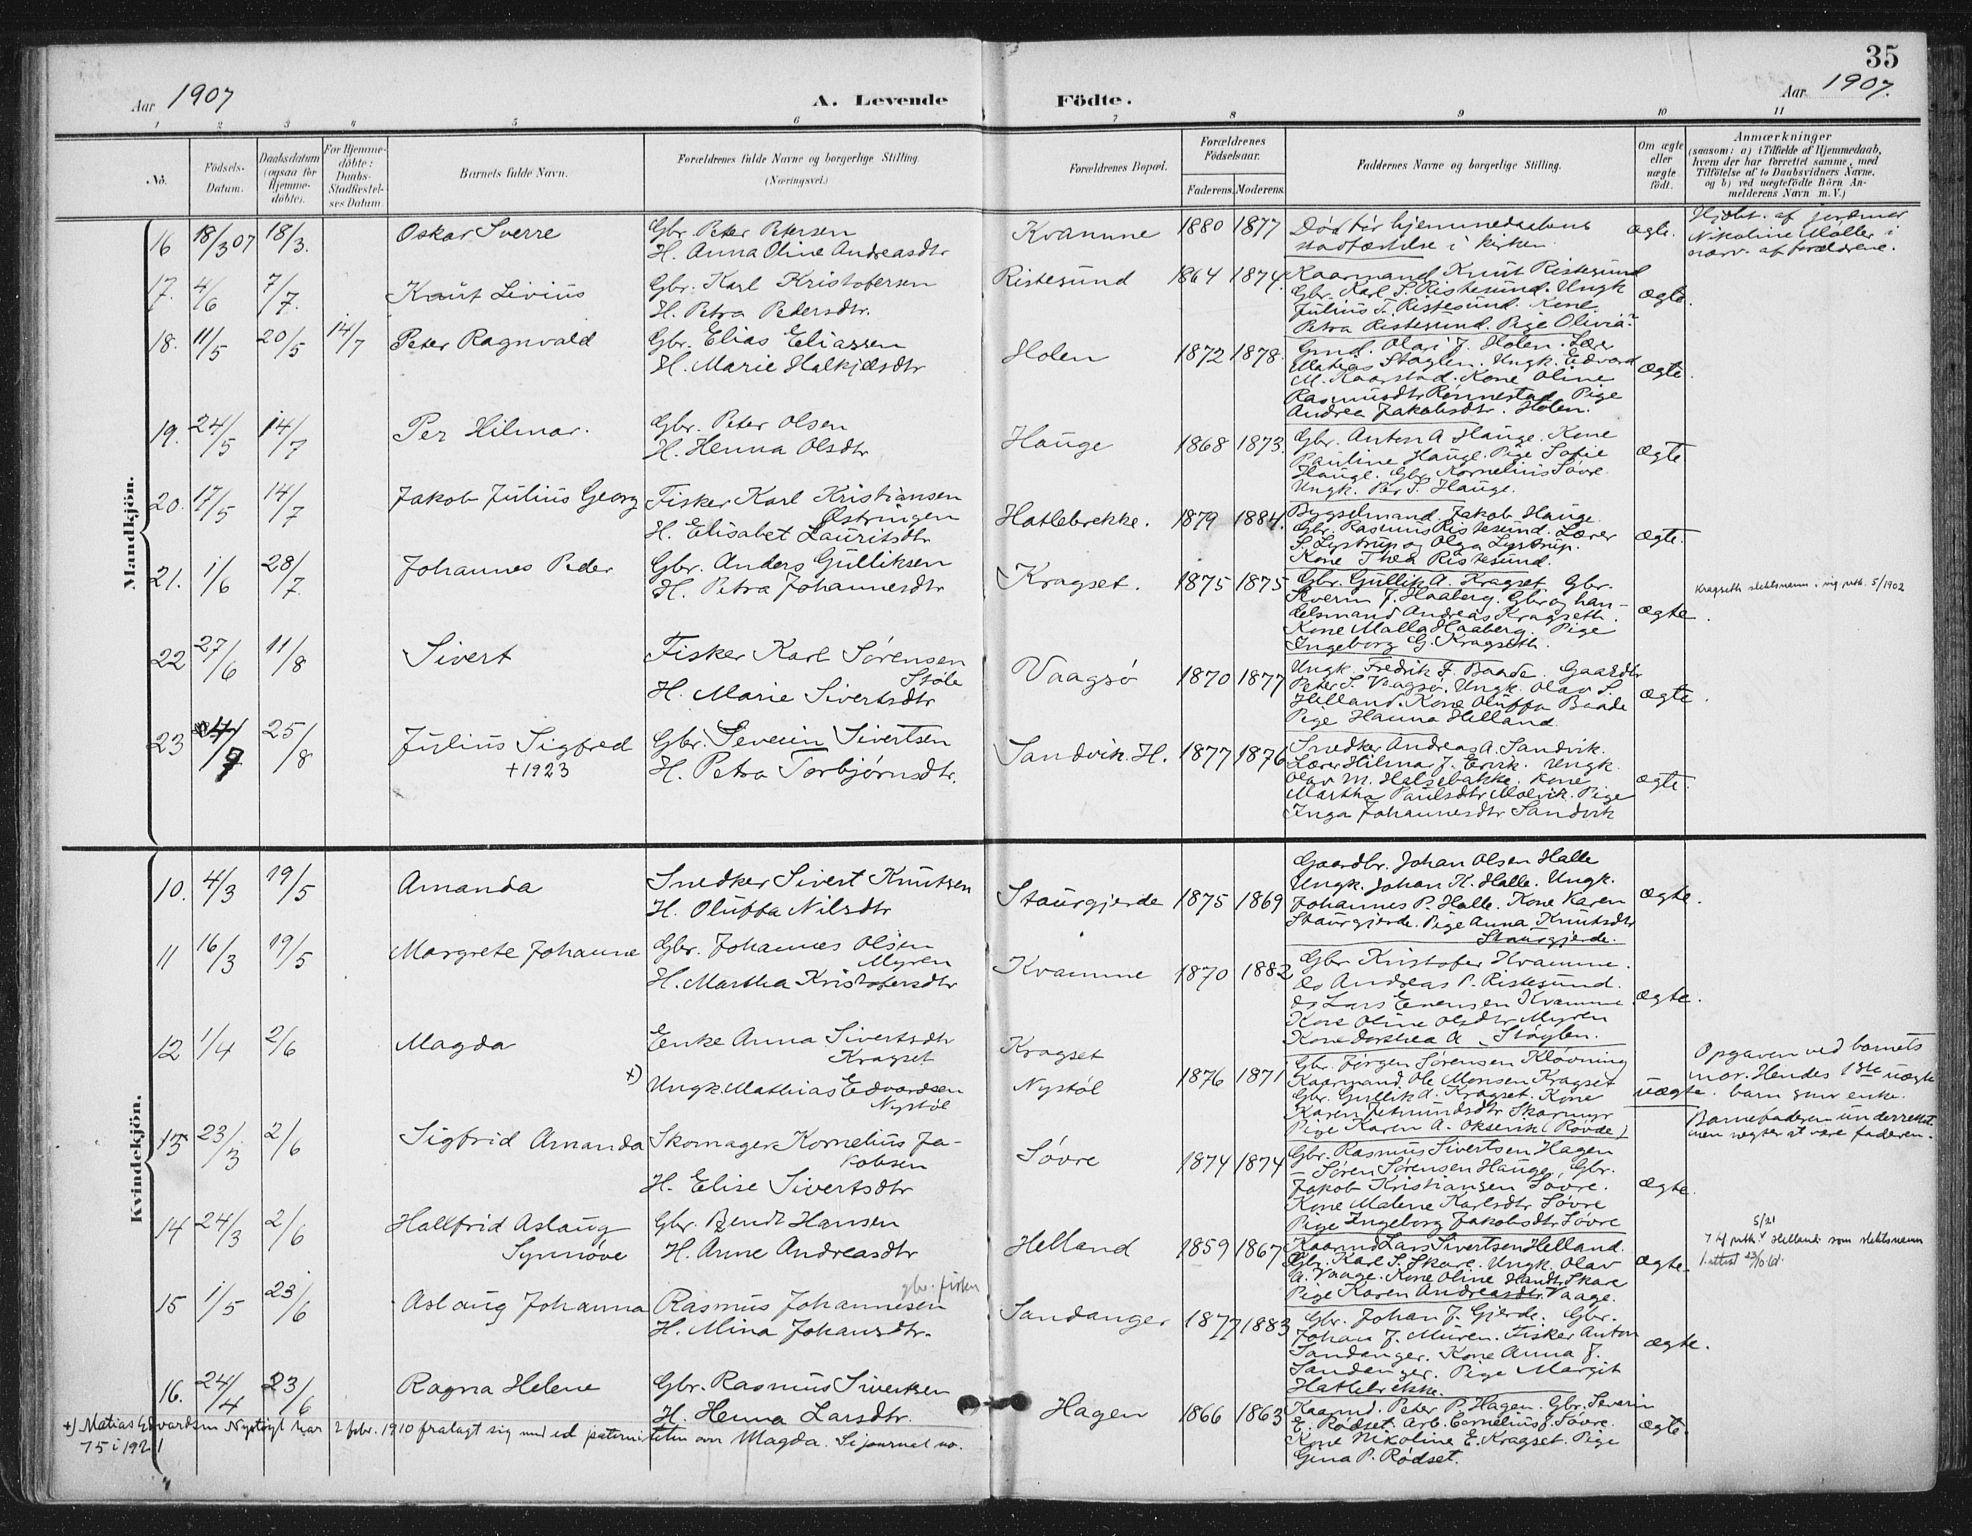 35
Aar 1907
A. Levende
Födte.
Aar 1907.
1 2 3 4 5 6 7 8 9 10 11
No.
Födsels-
Datum.
Daabsdatum
(ogsaa for
Hjemme-
döbte).
For Hjemme-
döbte:
Daabs-
Stadfæstel-
ses Datum.
Barnets fulde Navn.
Forældrenes fulde Navne og borgerlige Stilling.
(Næringsvei.)
Forældrenes Bopæl.
Forældrenes
Födselsaar.
Faderens. Moderens.
Faddernes Navne og borgerlige Stilling.
Om ægte
eller
uægte
födt.
Anmærkninger
(saasom: a) i Tilfælde af Hjemmedaab,
hvem der har forrettet samme, med
Tilföielse af to Daabsvidners Navne,
og b) ved uægtefödte Börn An-
melderens Navn m. V.)
Mandkjön.
16 18/3 07 18/3. Oskar Sverre
Gbr. Peter Petersen
H. Anna Oline Andreasdtr
Kvamme 1880 1877
Död før hjemmedaabens
stadfæstelse i kirken.
ægte.
Hjdbt. af jordmor
Nikoline Møller i
nærv. af forældrene.
17. 4/6 7/7. Knut Livius
Gbr. Karl Kristofersen
H. Petra Pedersdtr.
Ristesund 1864 1874.
Kaarmand Knut Ristesund
Gbr. Karl S. Ristesund. Ungk
Julius T. Ristesund. Kone
Petra Ristesund. Pige Olivia
ægte.
18. 11/5 20/5 14/7 Peter Ragnvald
Gbr. Elias Eliassen
H. Marie Halkjelsdtr
Holen 1872 1878.
Gmd. Olai J. Holen. Lærer
Matias Støylen. Ungk. Edvard
M. Kaarstad. Kone Oline
Rasmusdtr Rønnestad Pige
Andrea Jakobsdtr. Holen.
ægte.
19. 24/5 14/7 Per Hilmar.
Gbr. Peter Olsen
H. Henna Olsdtr
Hauge 1868 1873.
Gbr. Anton A Hauge. Kone
Pauline Hauge. Pige Sofie
Hauge. Gbr. Kornelius Søvre.
Ungk. Per S. Hauge.
ægte
20. 17/5 14/7 Jakob Julius Georg
Fisker Karl Kristiansen
Østringen
H. Elisabet Lauritsdtr
Hatlebrekke. 1879 1884.
Bygselmand Jakob Hauge
Gbr. Rasmus Ristesund. Lærer
S. Lystrup og Olga Lystrup.
Kone Thea Ristesund.
ægte.
21. 1/6 28/7. Johannes Peder
Gbr. Anders Gulliksen
H. Petra Johannesdtr
Kragset. 1875 1875
Gbr. Gullik A. Kragset Gbr.
Severin J. Haaberg. Gbr og han-
delsmand Andreas Kragseth.
Kone Malla Haaberg. Pige
Ingeborg G. Kragseth.
ægte.
Kragseth slektsnavn i flg. 5/1902
22 27/6 11/8 Sivert
Fisker Karl Sørensen
Støle
H. Marie Sivertsdtr
Vaagsø 1870 1877
Ungk. Fredrik F. Baade. Gaardbr
Peter S. Vaagsø. Ungk. Olav S.
Helland. Kone Oluffa Baade
Pige Hanna Helland.
ægte.
23 25/8 Julius Sigfred
+1923
Gbr. Severin Sivertsen
H. Petra Torbjørnsdtr.
Sandvik. H. 1877 1876
Snedker Andreas A. Sandvik.
Lærer Hilmar J. Ervik. Ungk.
Olav M. Halsebakke. Kone
Martha Paulsdtr Molvik. Pige
Inga Johannesdtr Sandvik
ægte.
Kvindekjön.
10. 4/3 19/5 Amanda
Snedker Sivert Knutsen
H. Oluffa Nilsdtr
Staurgjerde 1875 1869
Gaardbr. Johan Olsen Halle
Ungk. Johan K. Halle. Ungk.
Johannes P. Halle. Kone Karen
Staurgjerde. Pige Anna Knutsdtr
Staurgjerde.
ægte.
11 16/3 19/5 Margrete Johanne
Gbr. Johannes Olsen
Myren
H. Martha Kristofersdtr
Kvamme 1870 1882
Gbr Kristofer Kvamme.
do Andreas P. Ristesund.
do Lars Evensen Kvamme
Kone Oline Olsdtr Myren
Kone Dorthea A Støylen.
ægte.
12 1/4 2/6 Magda
Enke Anna Sivertsdtr
Kragset
+) Ungk. Mathias Edvardsen
Nystøl
Kragset
Nystøl 1876 1871
Gbr. Jørgen Sørensen Kløvning
Kaarmand. Ole Monsen Kragset
Gbr. Gullik A. Kragset. Kone
Karen Skarmyr
Pige Karen A. Oksevik (Rovde)
uægte.
Opgaven ved barnets
mor. Hendes 1ste uægte
barn som enke.
Barnefaderen underrettet
men negter at være faderen.
13 23/3 2/6 Sigfrid Amanda
Skomager Kornelius Ja-
kobsen
H. Elise Sivertsdtr
Søvre 1874 1874
Gbr. Rasmus Sivertsen Hagen
— Søren Sørensen Hauge, Gbr.
Jakob Kristiansen Søvre.
Kone Malene Karlsdtr Søvre
Pige Ingeborg Jakobsdtr Søvre
ægte.
14 24/3 2/6 Hallfrid Aslaug
Synnøve
Gbr. Bendt Hansen
H. Anne Andreasdtr
Helland 1859 1867
Kaarmd Lars Sivertsen Helland.
Gbr. Karl S. Skare. Ungk. Olav
A. Vaage. Kone Oline Hansdtr Skare
Pige Karen Andreasdtr. Vaage.
ægte.
5/21
Helland som slektsnavn
15 1/5 23/6 Aslaug Johanna
gbr. fisker
Rasmus Johannesen
H. Mina Johansdtr.
Sandanger 1877 1883
Gbr. Johan J. Gjerde. Gbr.
Johan J. Muren. Fisker Anton
Sandanger. Kone Anna J.
Sandanger. Pige Margit
Hatlebrekke.
ægte.
16. 24/4 23/6 Ragna Helene
Gbr. Rasmus Sivertsen
H. Henna Larsdtr.
Hagen 1866 1863
Kaarmd. Peter P. Hagen. Gbr. Severin
E. Rødset. Arb. Cornelius J. Søvre.
Kone Nikoline E. Kragset. Pige
Gina P. Rødset.
ægte.
+) Matias Edvardsen Nystøyl har 2 febr. 1910 fralagt sig med ed paterniteten over Magda. Se journal no.
75 i 1921